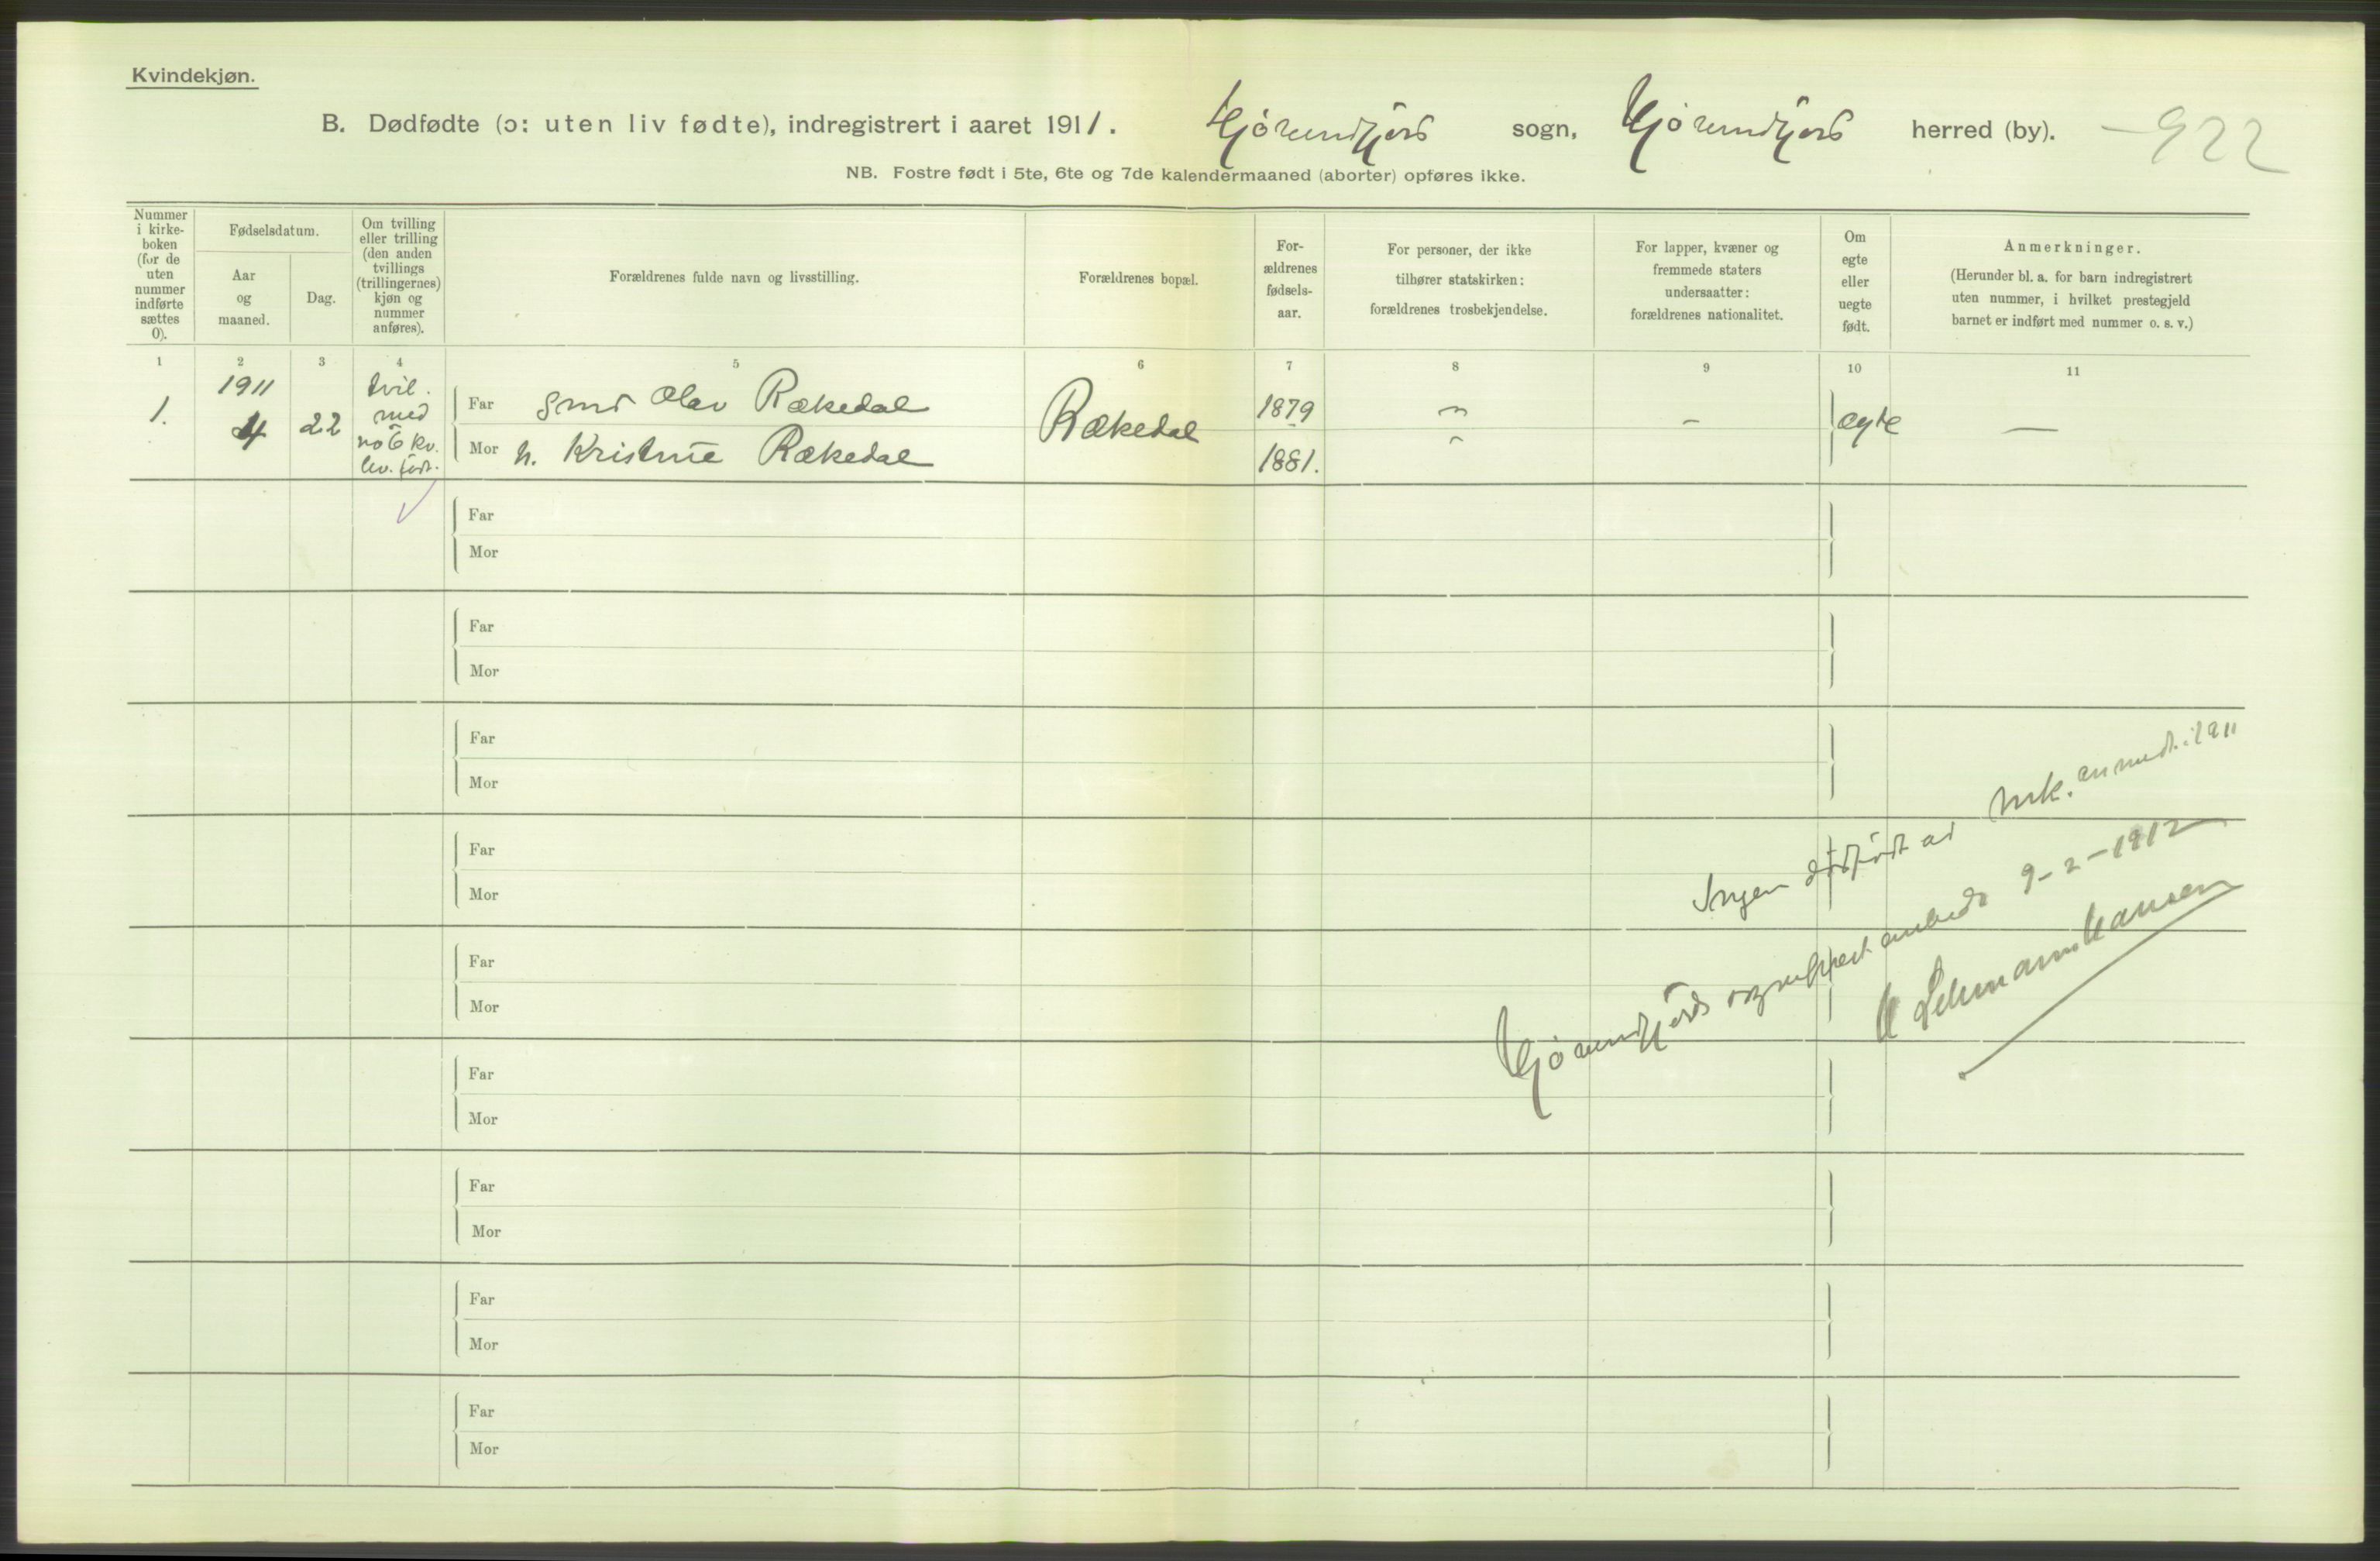 Kvindekjøn.
B. Dødfødte (ɔ: uten liv fødte), indregistrert i aaret 1911. Hjørundfjord sogn, Hjørundfjord herred (by). – 922
NB. Fostre født i 5te, 6te og 7de kalendermaaned (aborter) opføres ikke.
Nummer i kirke- boken (for de uten nummer indførte sættes 0).
Fødselsdatum.
Aar og maaned.
Dag.
Om tvilling eller trilling (den anden tvillings (trillingernes) kjøn og nummer anføres).
Forældrenes fulde navn og livsstilling.
Forældrenes bopæl.
For- ældrenes fødsels- aar.
For personer, der ikke tilhører statskirken: forældrenes trosbekjendelse.
For lapper, kvæner og fremmede staters undersaatter: forældrenes nationalitet.
Om egte eller uegte født.
Anmerkninger.
(Herunder bl. a. for barn indregistrert uten nummer, i hvilket prestegjeld barnet er indført med nummer o. s. v.)
1 2 3 4 5 6 7 8 9 10 11
1. 1911 4 22 tvil. med no 6 kv. lev. født.
Far Olav Rækedal Rækedal 1879 – – ægte —
Mor h. Kristine Rækedal 1881. –
Far
Mor
Far
Mor
Far
Mor
Far
Mor
Far
Mor
Far
Mor
Far
Mor
Far
Mor
Far
Mor
Ingen dødfødt av mk. anmeldt i 1911
Hjørundfjords sogneprestembede 9-2-1912
H Lehmann Hansen